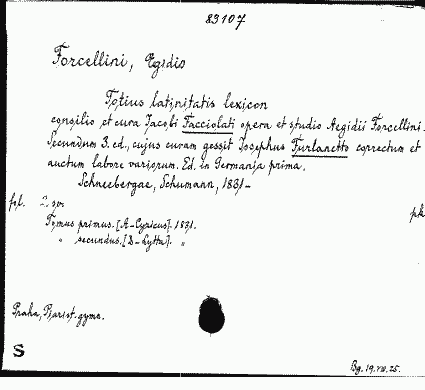 83107
Forcellini, Egidio
Totius latinitatis lexicon
consilio et cura Jacobi Facciolati opera et studio Aegidii Forcellini.
Secundum 3. ed., cujus curam gessit Josephus Furlanetto correctum et
auctum labore variorum. Ed. in Germania prima.
Schneebergae, Schumann, 1831-
fol. 2 sv. pk
Tomus primus. [A-Cyzicus]. 1831.
" secundus. [D-Lytta]. "
Praha, Piarist. gymn.
S
Bg. 19.VIII.25.